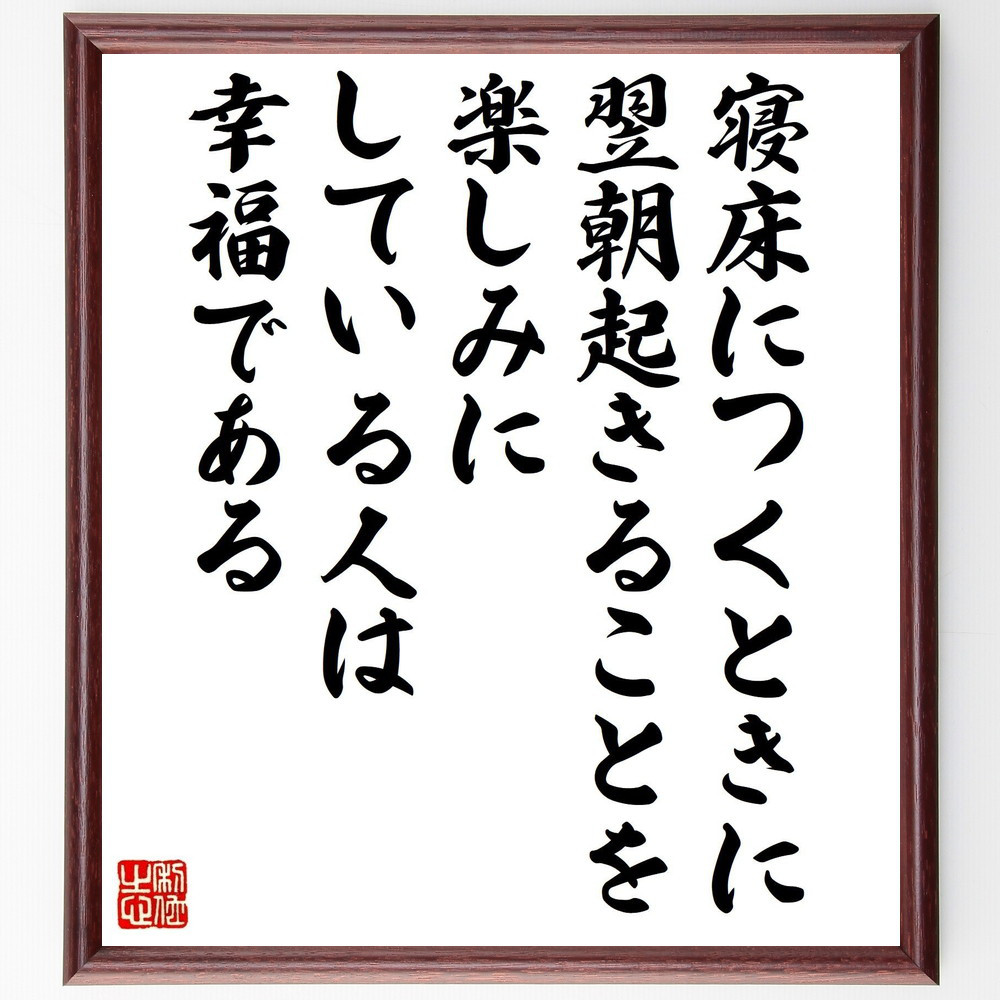 寝床につくときに
翌朝起きることを
楽しみに
している人は
幸福である